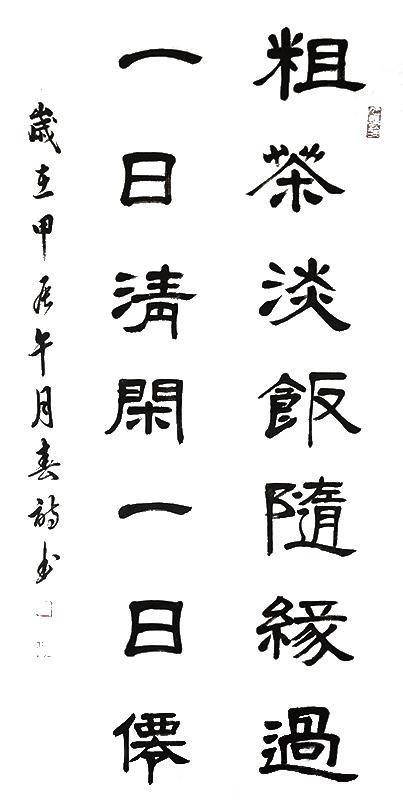 粗茶淡飯隨緣過
一日清閑一日僊
歲在甲辰午月春詩書